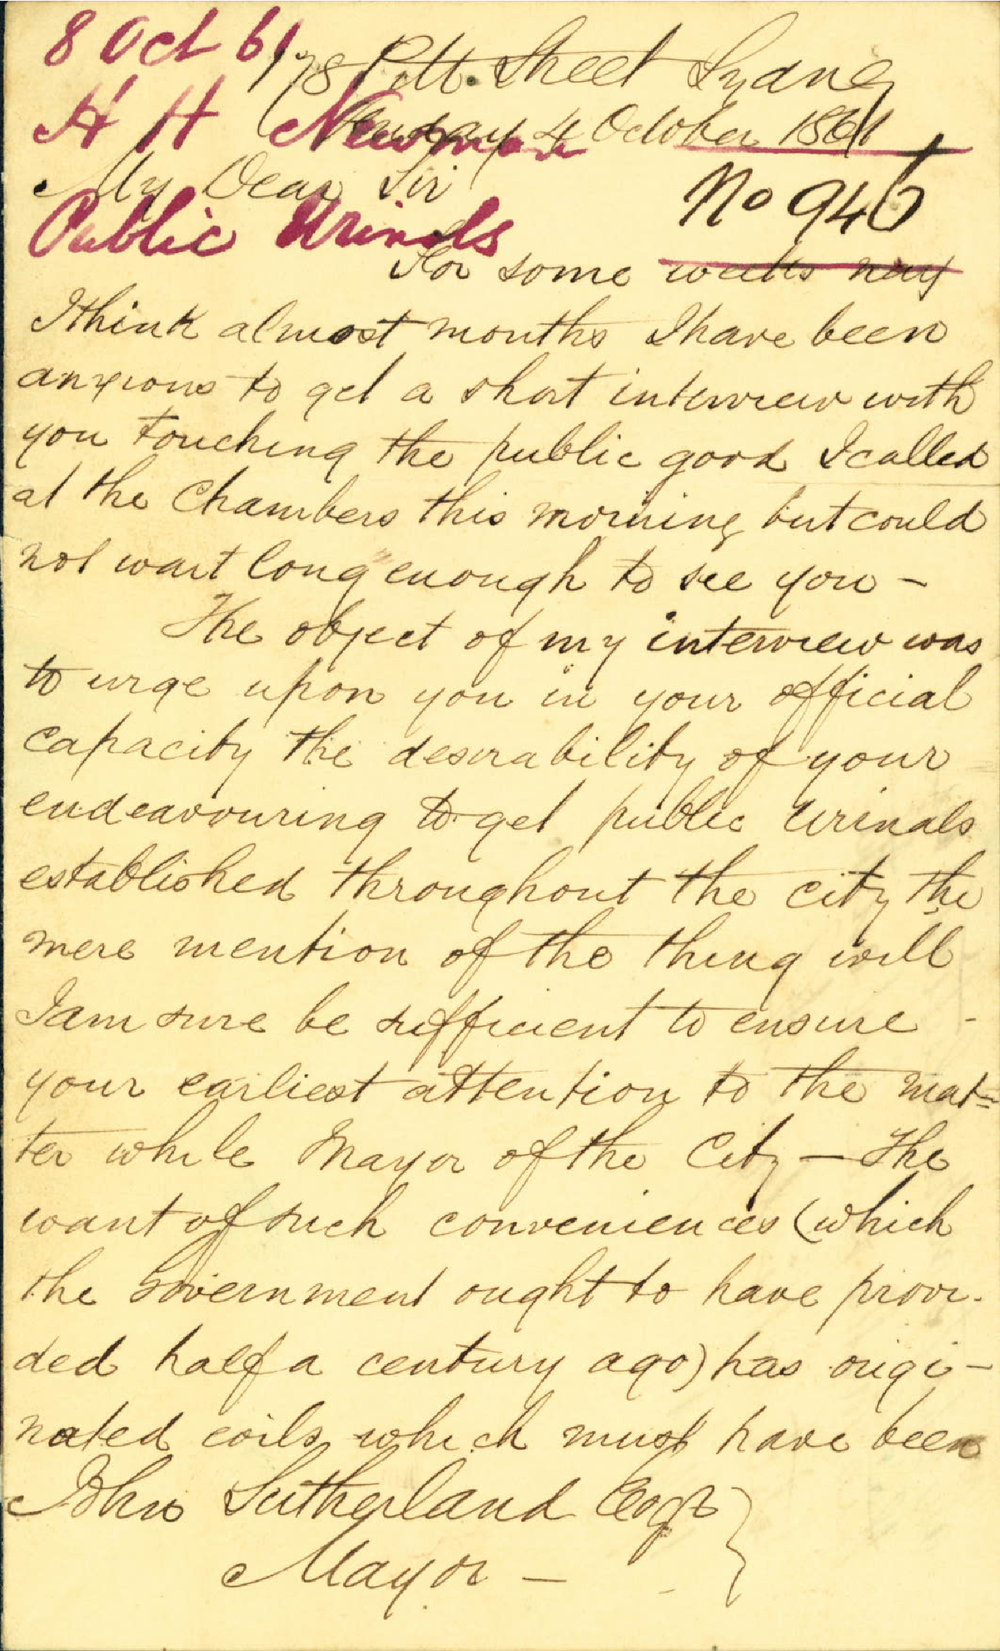 8 Oct 61
178 Pitt Street Sydney
H H Newman
4 October 1861
My Dear Sir
No 946
Public Urinals
For some weeks nay
I think almost months I have been
anxious to get a short interview with
you touching the public good I called
at the Chambers this morning but could
not wait long enough to see you –
The object of my interview was
to urge upon you in your official
capacity the desirability of your
endeavouring to get public Urinals
established throughout the city the
mere mention of the thing will
I am sure be sufficient to ensure -
your earliest attention to the mat=
ter while Mayor of the City – The
want of such conveniences (which
the Government ought to have provi-
ded half a century ago) has origi-
nated evils which must have been
John Sutherland Esqr }
Mayor –